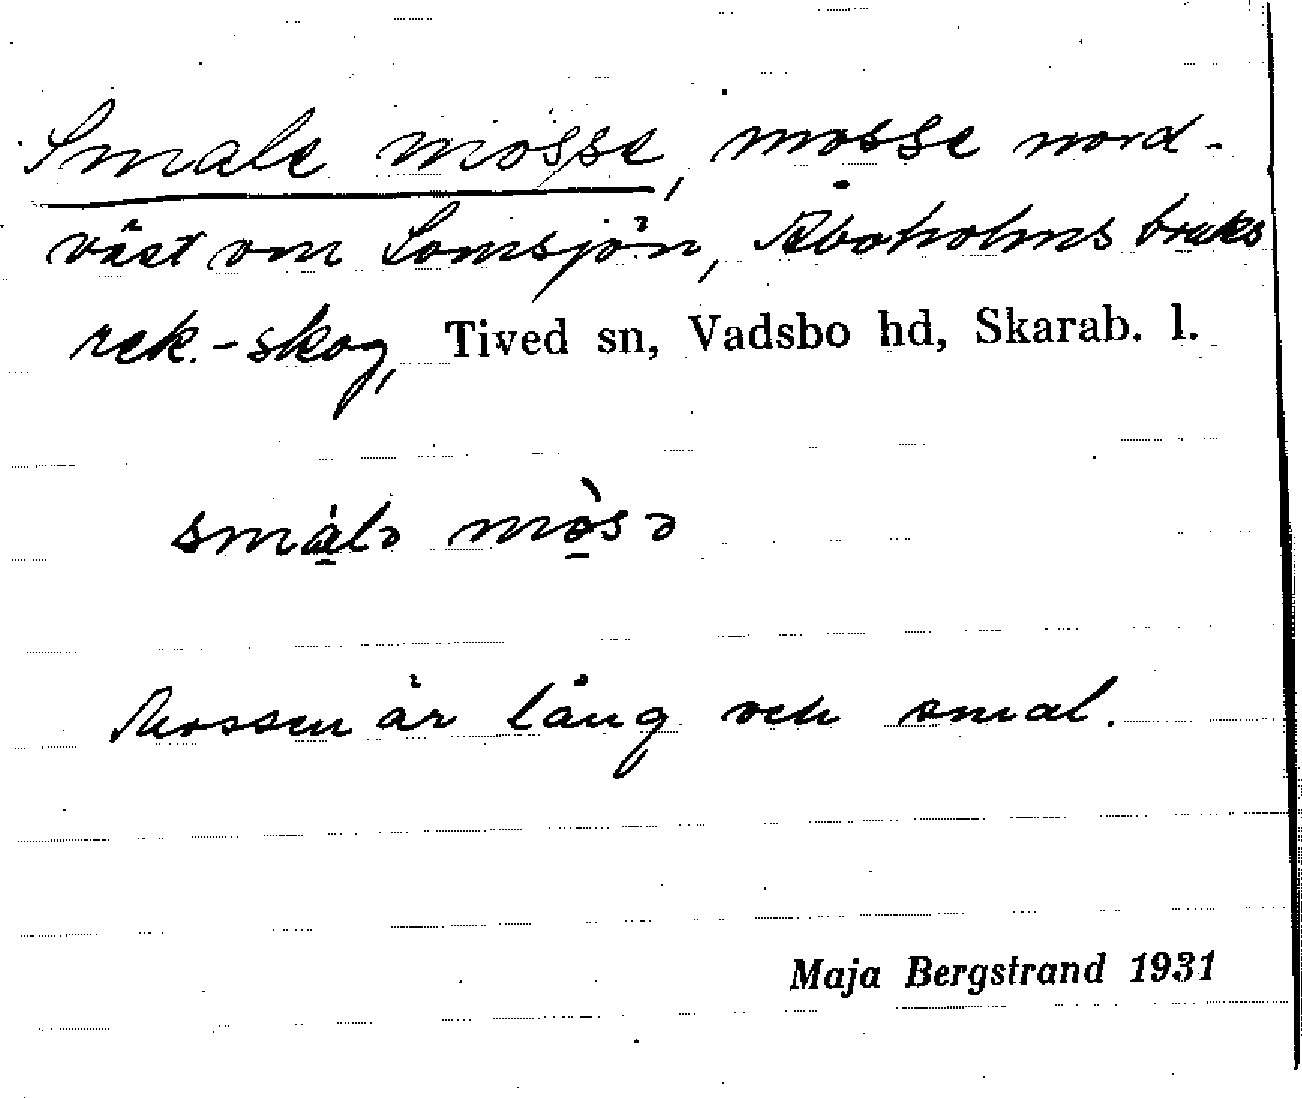 Smale mosse, mosse nord-
väst om Lomsjön, Aboholms bruks
rek.-skog, Tived sn, Vadsbo hd, Skarab. l.
smàlə mòsə
Mossen är lång och smal.
Maja Bergstrand 1931